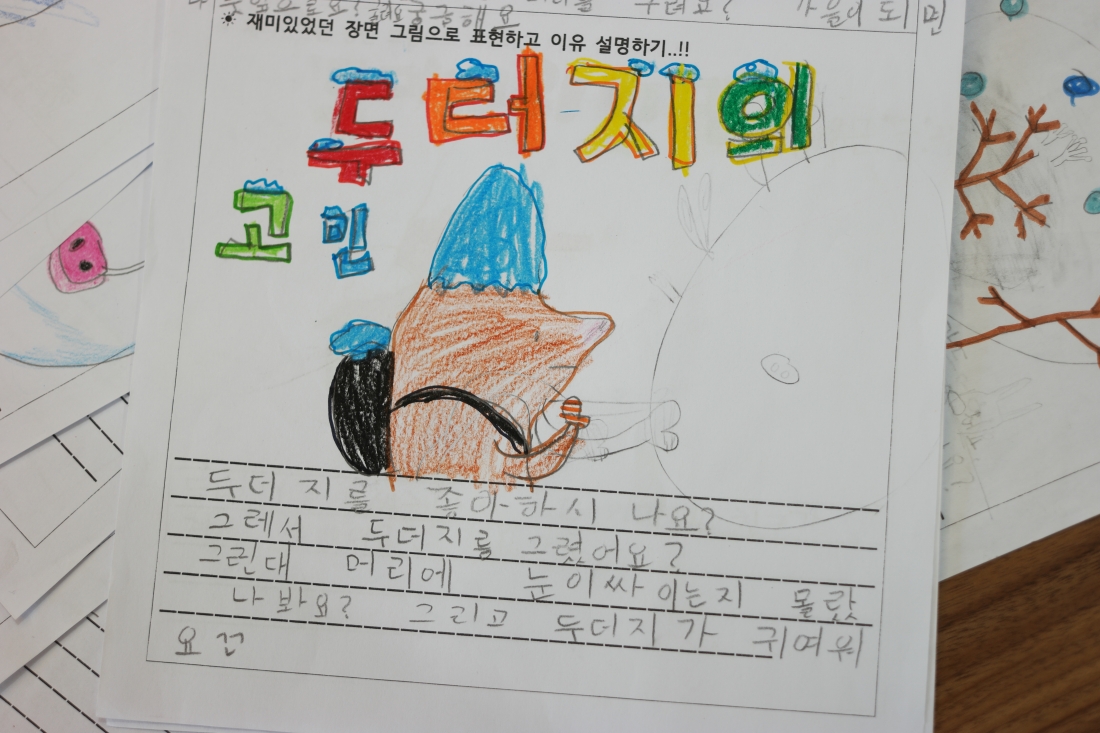 궁금해요
☀ 재미있었던 장면 그림으로 표현하고 이유 설명하기..!!
두더지의
고민
두더지를 좋아하시나요?
그레서 두더지를 그렸어요?
그린대 머리에 눈이싸이는지 몰랐
나봐요? 그리고 두더지가 귀여워
요